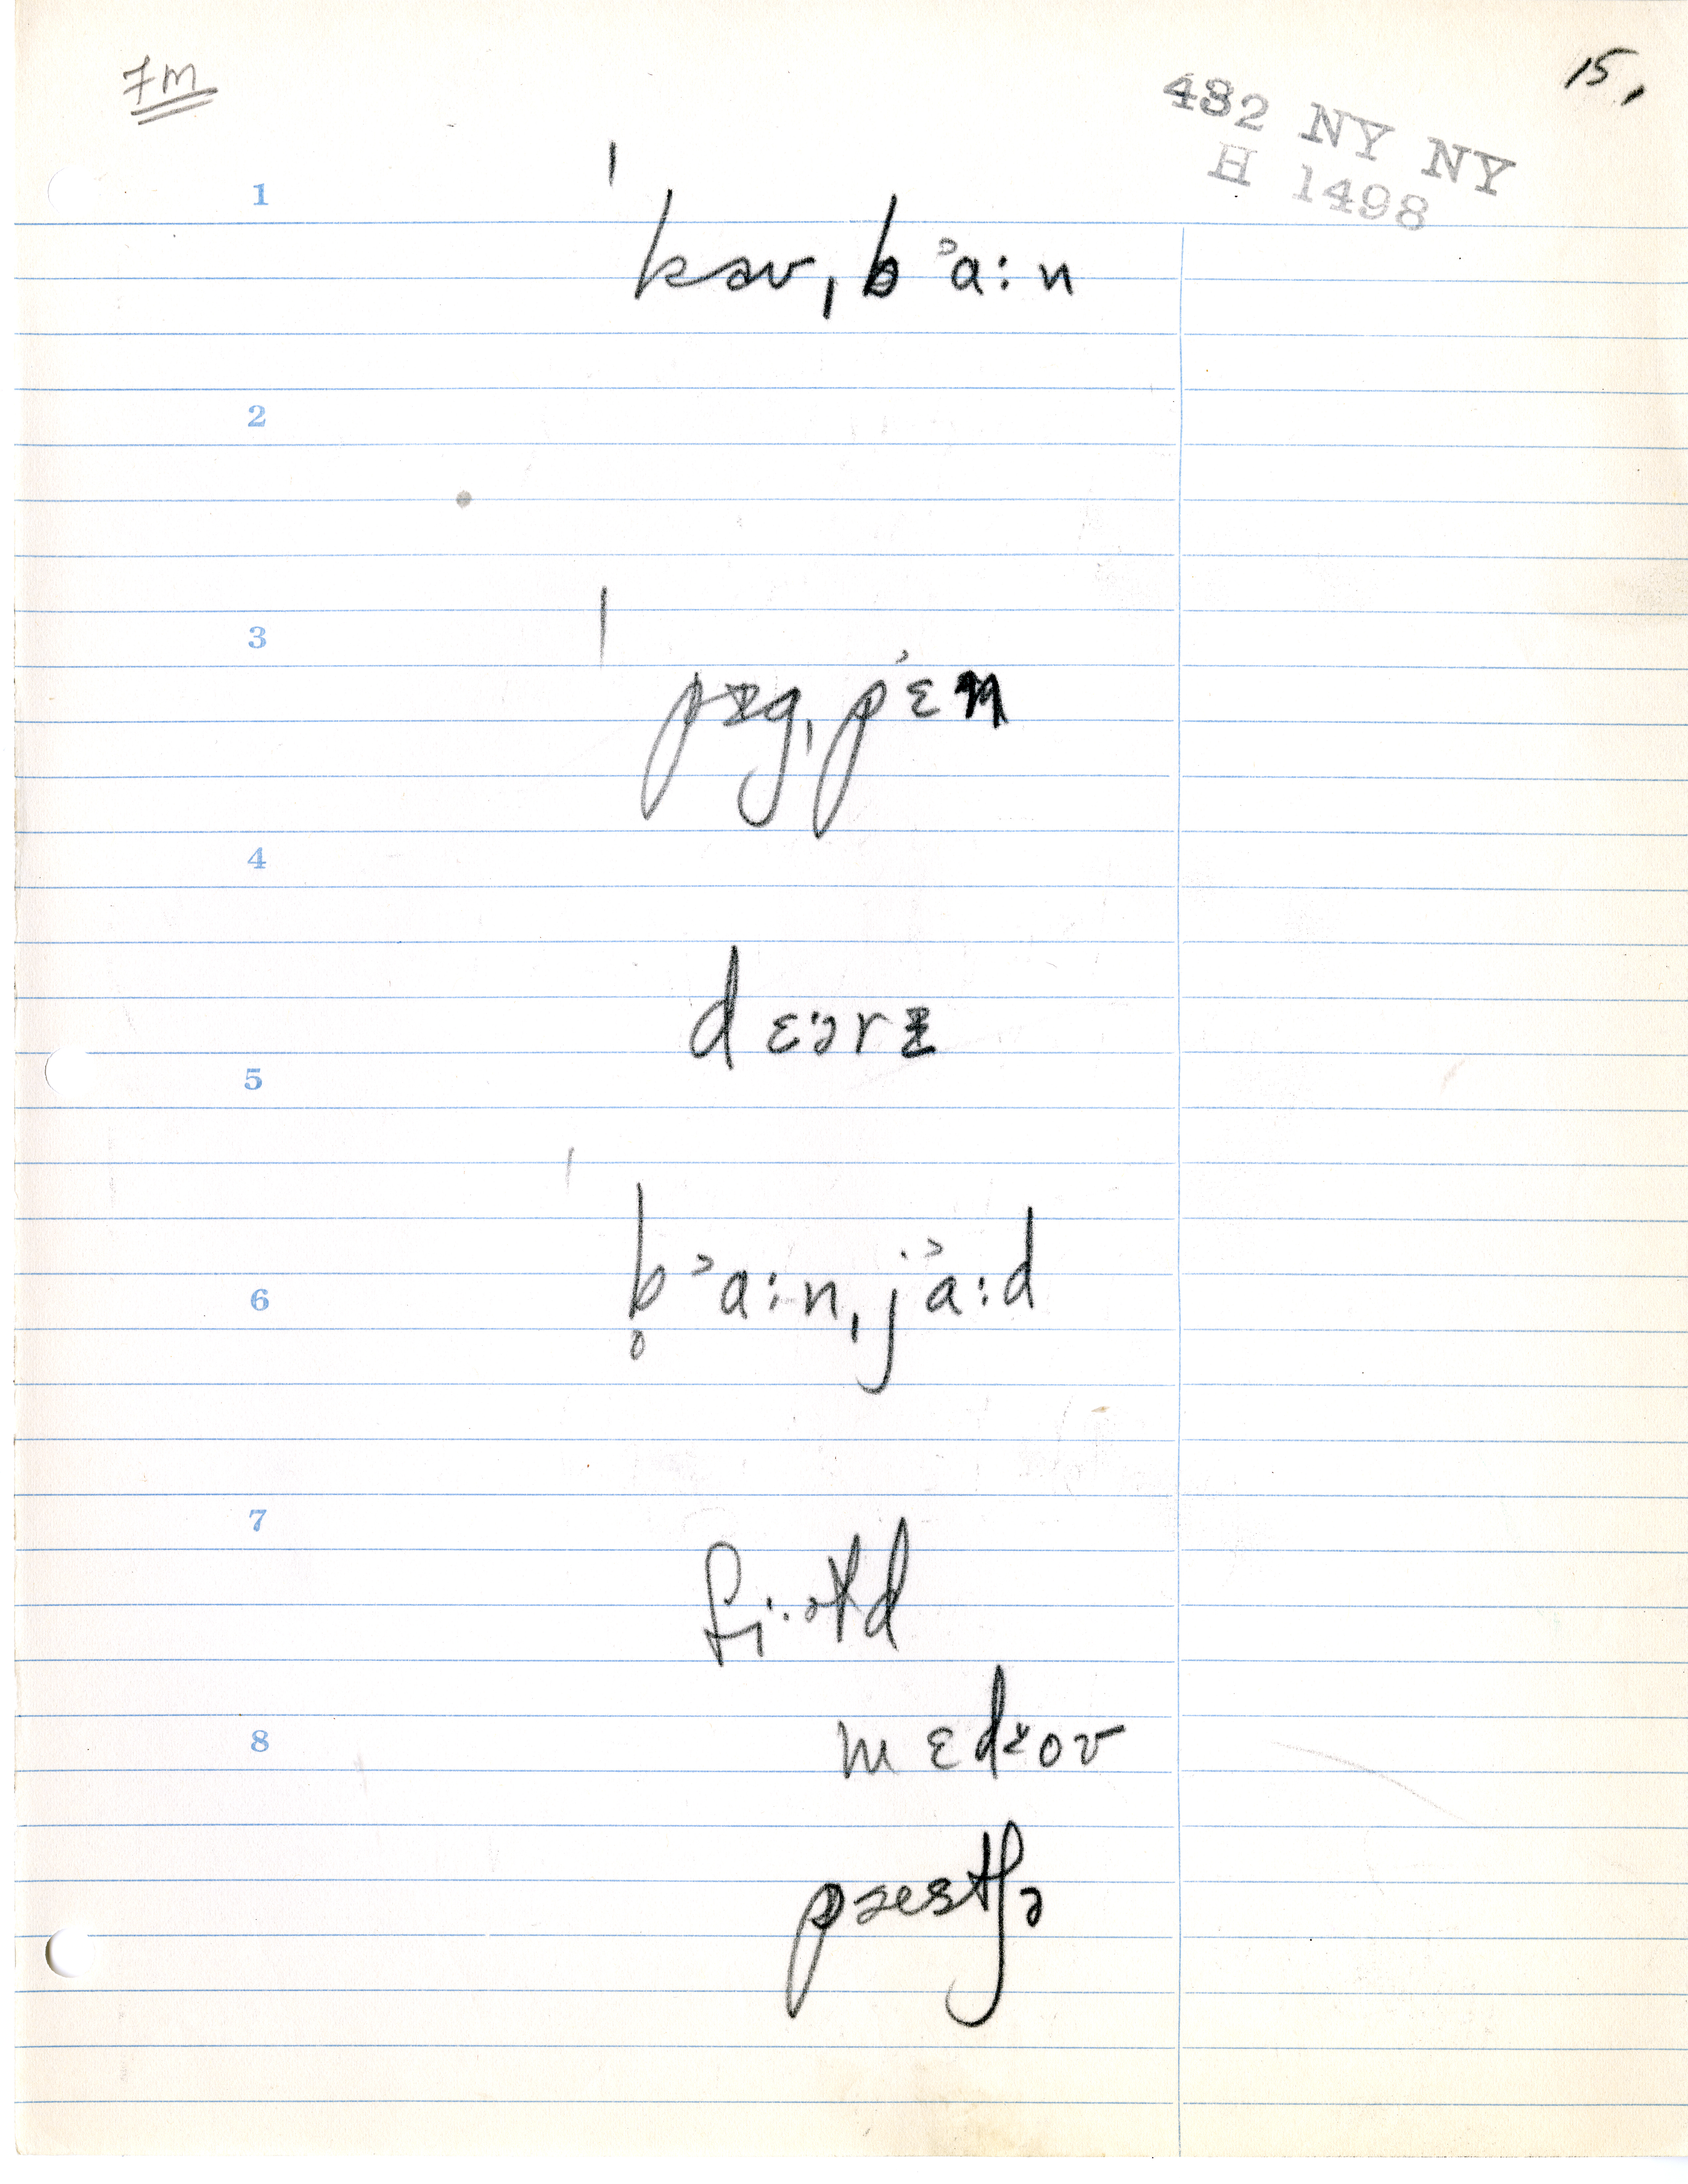 7m
15,
432 NY NY
H 1498
1
ˈkaʊˌbᵊa:n
2
3
ˈpɪgˌpᵋɛn
4
dɛ:ərɪ
5
ˈb̥ᵊa:nˌjᵊa:d
6
7
fi:əɫd
8
mɛdɤoʊ
pæstʃə